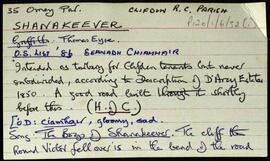 35 Omey Par. CLIFDEN R.C. PARISH
P120/1/6/52(i)
SHANAKEEVER
Griffiths: Thomas Eyre.
O.S. LIST SÉAN CHIAMHAIR
Intended as turbary for Clifden tenants but never
embounded, according to Description of D'Arcy Estates
1850. A good road built through it shortly
before this. (H. of C.)
[O'D: cianthair, gloomy, sad.
Song The Bogs of Shanakeever. The cliff the
Hound Victor fell over is in the bend of the road